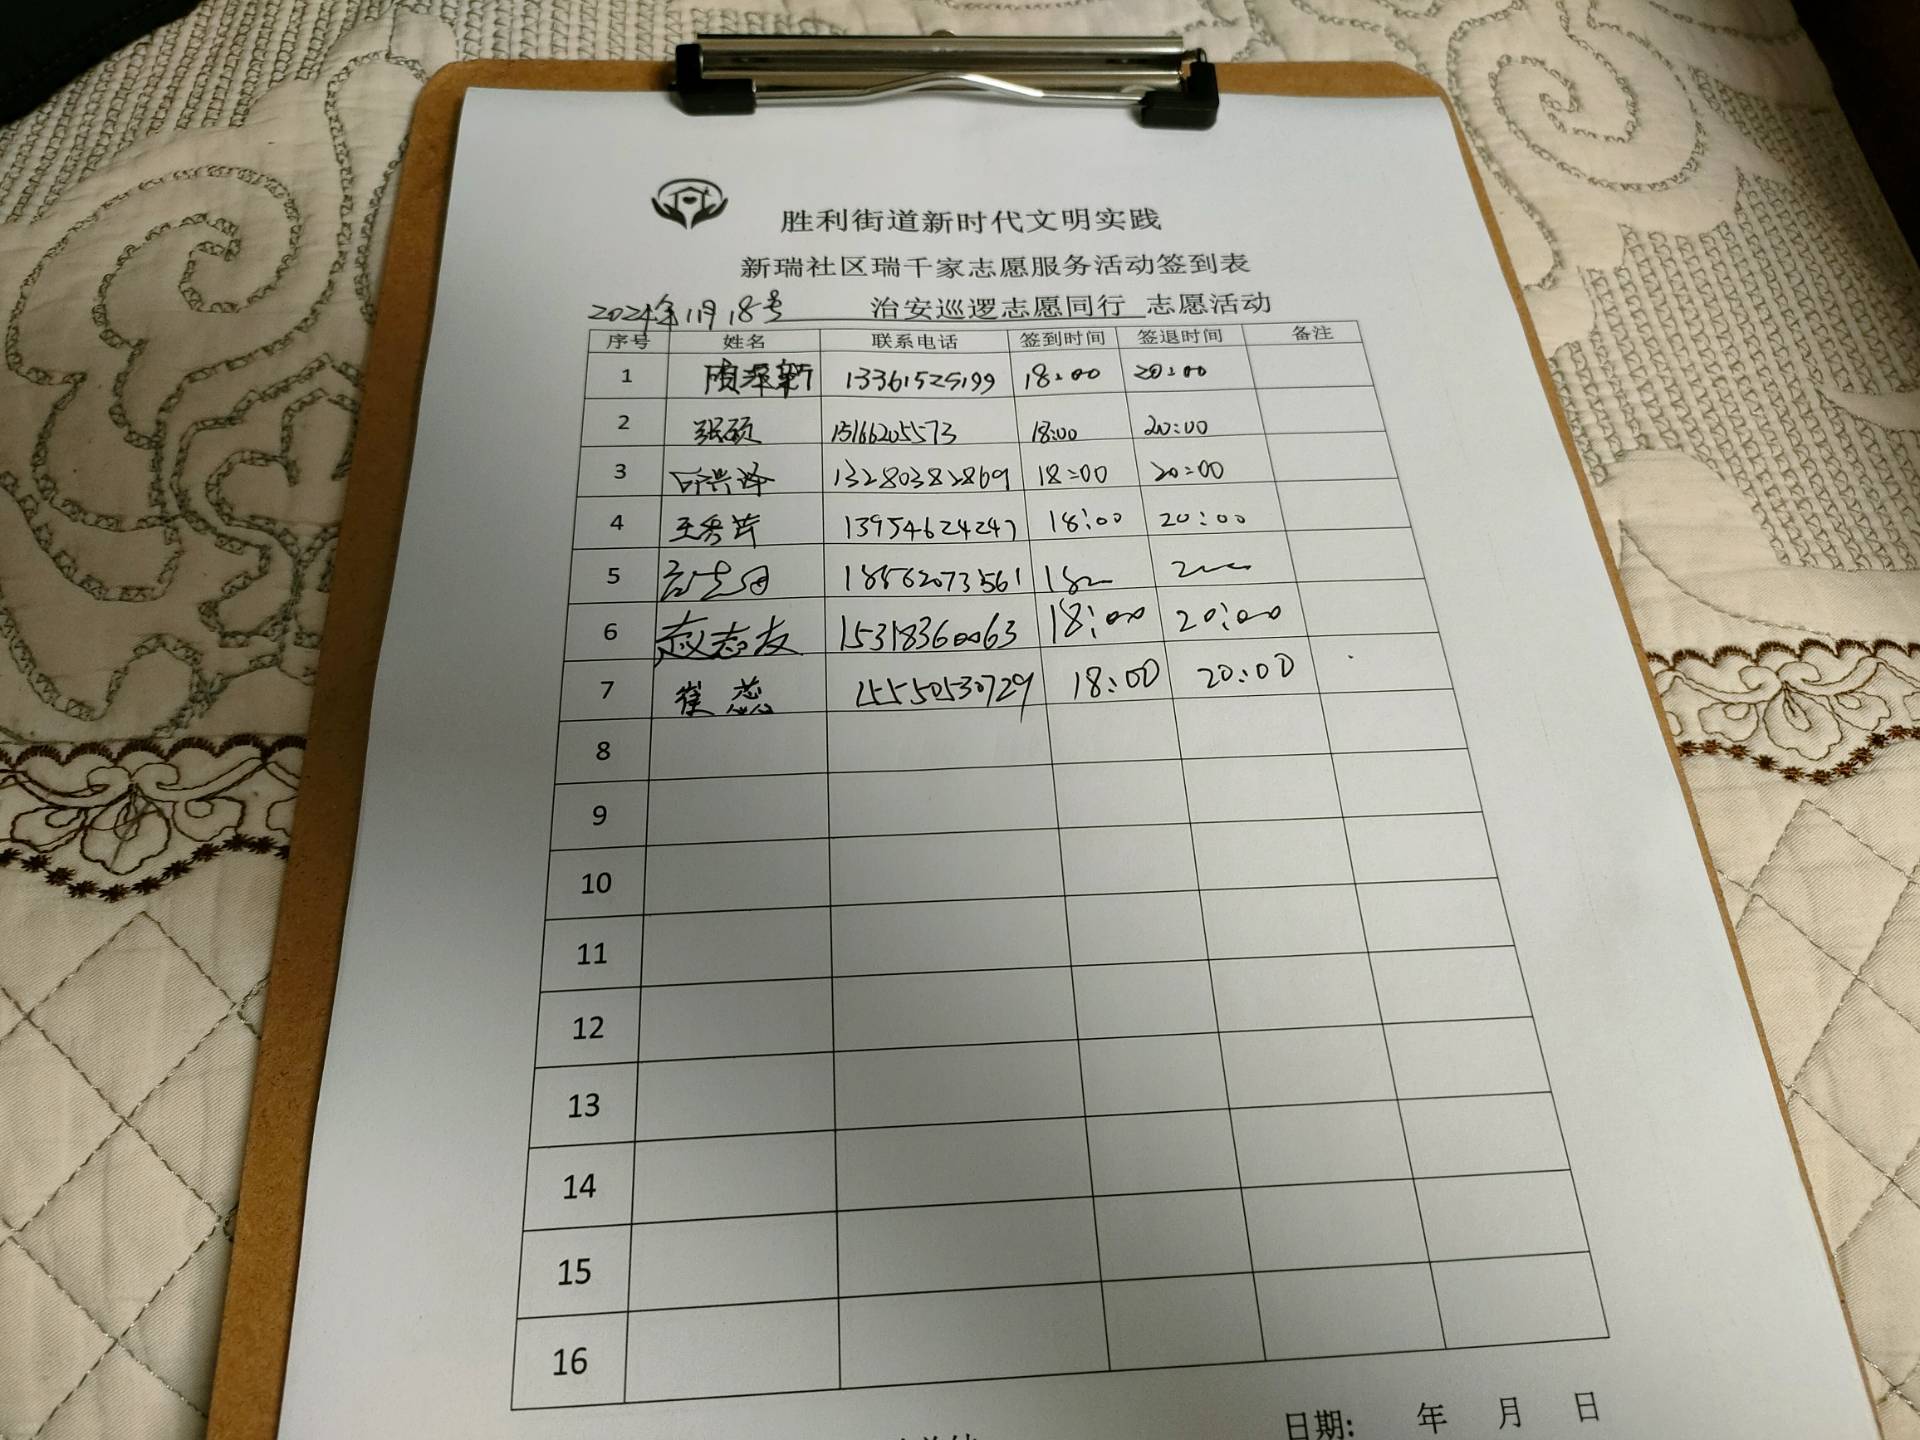 胜利街道新时代文明实践
新瑞社区瑞千家志愿服务活动签到表
2024年11月18号 治安巡逻志愿同行 志愿活动
序号 姓名 联系电话 签到时间 签退时间 备注
1 13361525199 18:00 20:00
2 张硕 15166205573 18:00 20:00
3 13280382869 18:00 20:00
4 王秀芹 13954624247 18:00 20:00
5 18562073561
6 赵志友 15318360063 18:00 20:00
7 崔蕊 15550530729 18:00 20:00
8
9
10
11
12
13
14
15
16
日期: 年 月 日